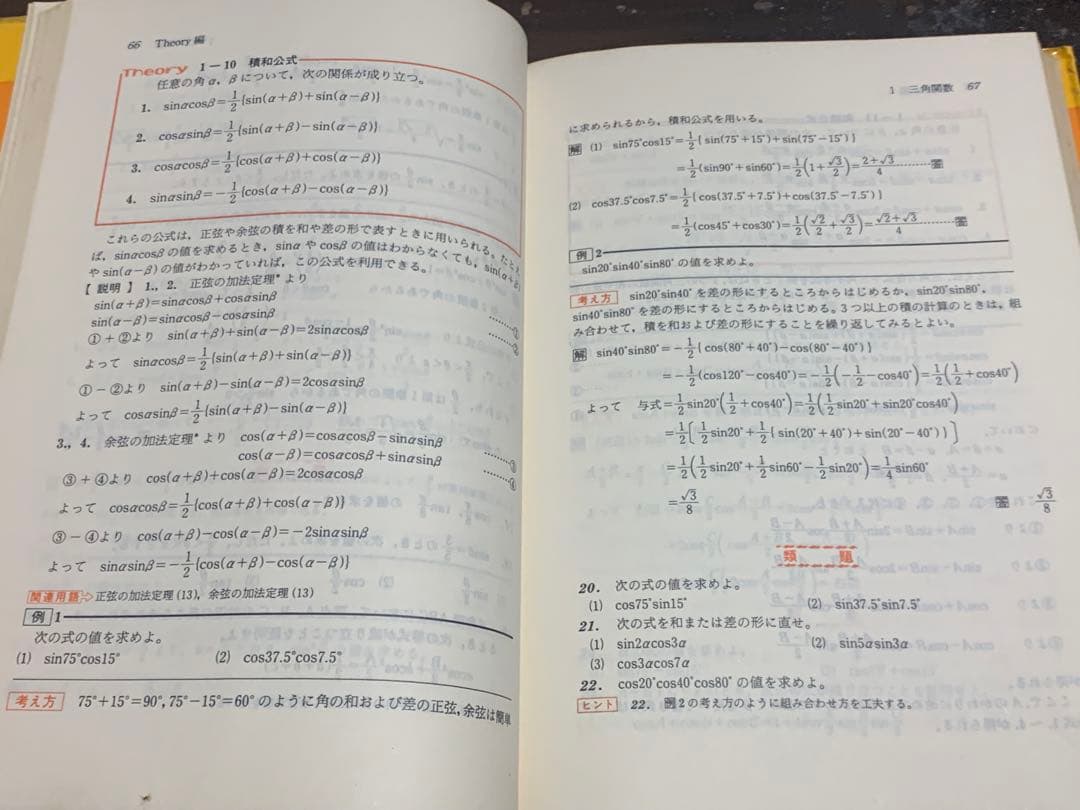 66 Theory 編
Theory 1－10 積和公式
任意の角α, βについて, 次の関係が成り立つ。
1. sinαcosβ=1/2{sin(α+β)+sin(α−β)}
2. cosαsinβ=1/2{sin(α+β)−sin(α−β)}
3. cosαcosβ=1/2{cos(α+β)+cos(α−β)}
4. sinαsinβ=−1/2{cos(α+β)−cos(α−β)}
これらの公式は, 正弦や余弦の積を和や差の形で表すときに用いられる。たとえ
ば, sinαcosβの値を求めるとき, sinαやcosβの値はわからなくても, sin(α+β)
やsin(α−β)の値がわかっていれば, この公式を利用できる。
【説明】 1., 2. 正弦の加法定理*より
sin(α+β)=sinαcosβ+cosαsinβ ………①
sin(α−β)=sinαcosβ−cosαsinβ ………②
①+②より sin(α+β)+sin(α−β)=2sinαcosβ
よって sinαcosβ=1/2{sin(α+β)+sin(α−β)}
①−②より sin(α+β)−sin(α−β)=2cosαsinβ
よって cosαsinβ=1/2{sin(α+β)−sin(α−β)}
3., 4. 余弦の加法定理*より cos(α+β)=cosαcosβ−sinαsinβ ………③
cos(α−β)=cosαcosβ+sinαsinβ ………④
③+④より cos(α+β)+cos(α−β)=2cosαcosβ
よって cosαcosβ=1/2{cos(α+β)+cos(α−β)}
③−④より cos(α+β)−cos(α−β)=−2sinαsinβ
よって sinαsinβ=−1/2{cos(α+β)−cos(α−β)}
関連用語⇨正弦の加法定理(13), 余弦の加法定理(13)
例1
次の式の値を求めよ。
(1) sin75°cos15° (2) cos37.5°cos7.5°
考え方 75°+15°=90°, 75°−15°=60°のように角の和および差の正弦, 余弦は簡単
1 三角関数 67
に求められるから, 積和公式を用いる。
解 (1) sin75°cos15°=1/2{sin(75°+15°)+sin(75°−15°)}
=1/2(sin90°+sin60°)=1/2(1+√3/2)=(2+√3)/4………答
(2) cos37.5°cos7.5°=1/2{cos(37.5°+7.5°)+cos(37.5°−7.5°)}
=1/2(cos45°+cos30°)=1/2(√2/2+√3/2)=(√2+√3)/4………答
例2
sin20°sin40°sin80°の値を求めよ。
考え方 sin20°sin40°を差の形にするところからはじめるか, sin20°sin80°,
sin40°sin80°を差の形にするところからはじめる。3つ以上の積の計算のときは, 組
み合わせて, 積を和および差の形にすることを繰り返してみるとよい。
解 sin40°sin80°=−1/2{cos(80°+40°)−cos(80°−40°)}
=−1/2(cos120°−cos40°)=−1/2(−1/2−cos40°)=1/2(1/2+cos40°)
よって 与式=1/2sin20°(1/2+cos40°)=1/2(1/2sin20°+sin20°cos40°)
=1/2[1/2sin20°+1/2{sin(20°+40°)+sin(20°−40°)}]
=1/2(1/2sin20°+1/2sin60°−1/2sin20°)=1/4sin60°
=√3/8 答 √3/8
類題
20. 次の式の値を求めよ。
(1) cos75°sin15° (2) sin37.5°sin7.5°
21. 次の式を和または差の形に直せ。
(1) sin2αcos3α (2) sin5αsin3α
(3) cos3αcos7α
22. cos20°cos40°cos80°の値を求めよ。
ヒント 22. 例2の考え方のように組み合わせ方を工夫する。